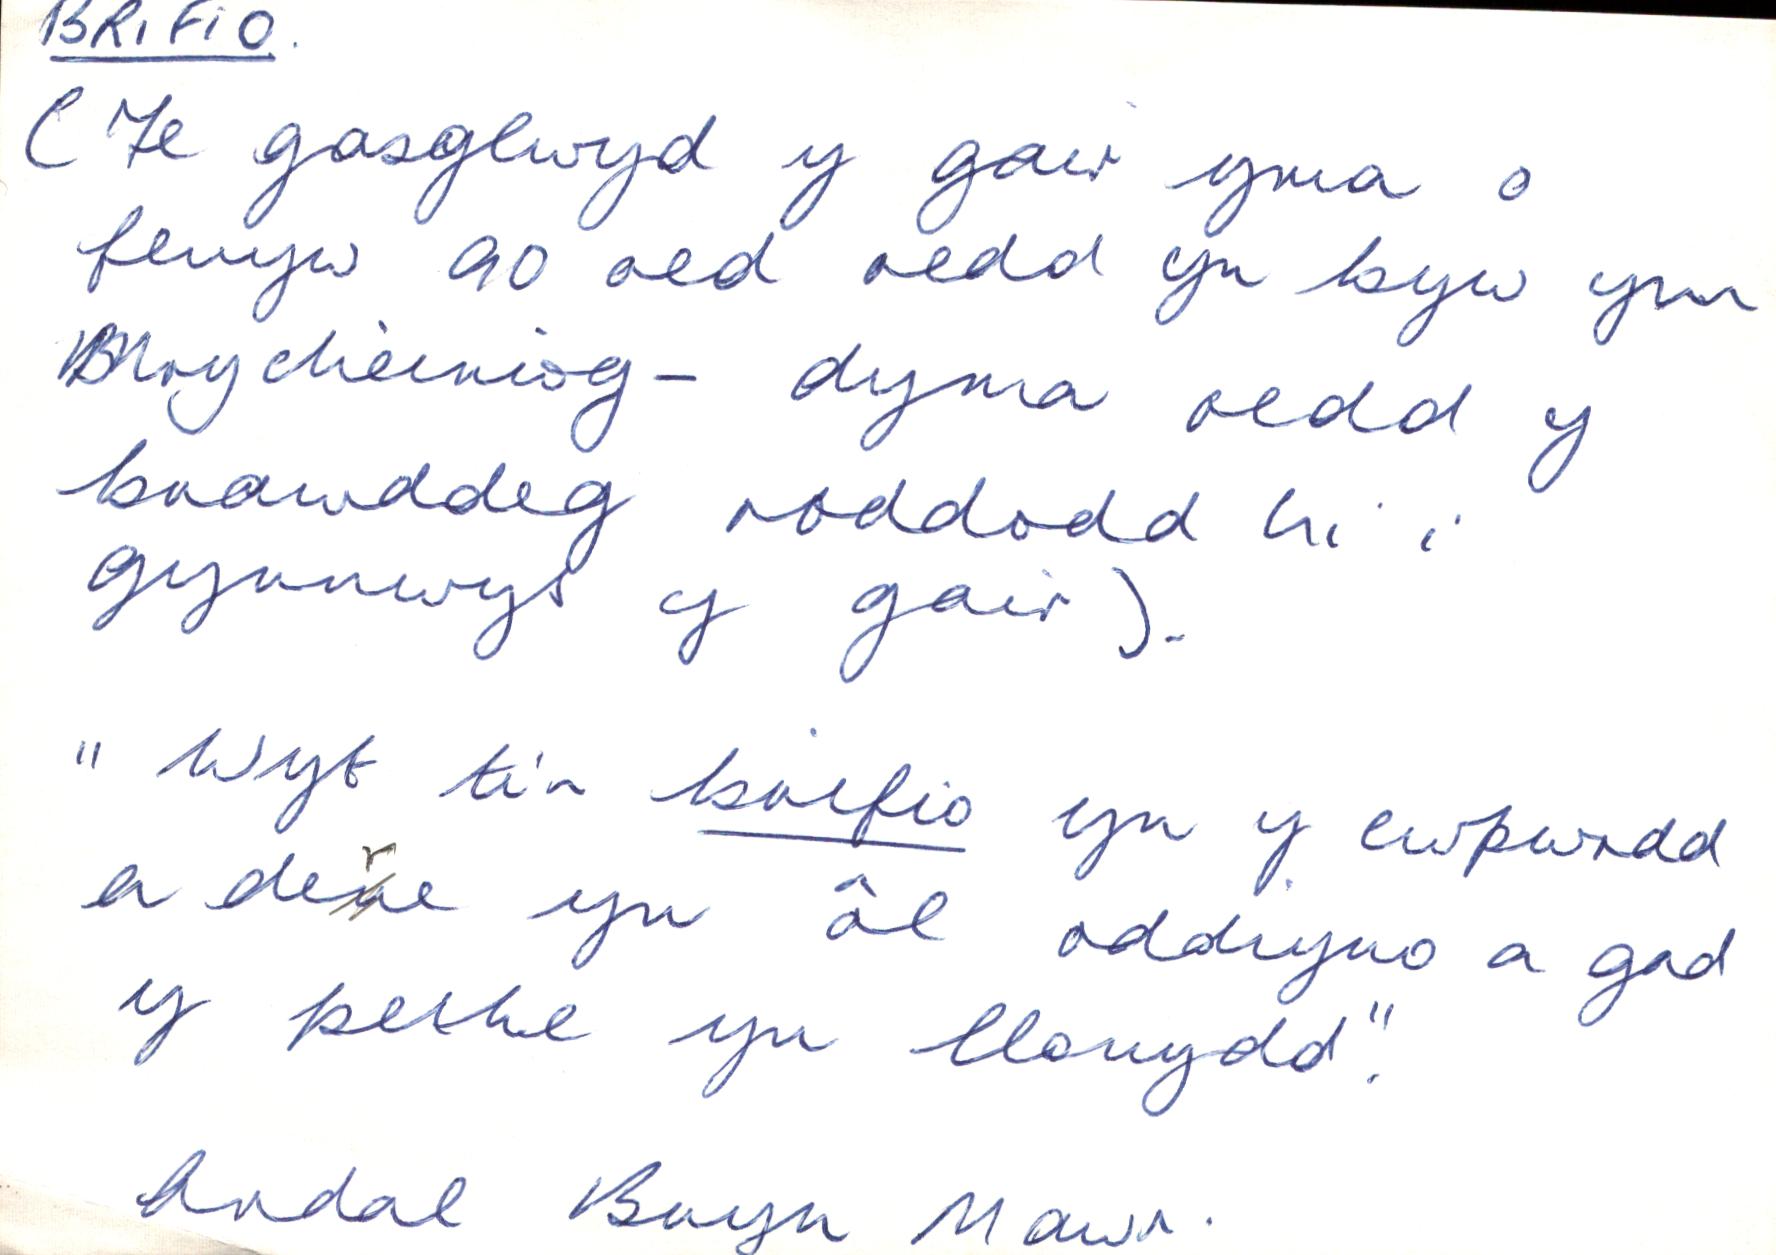 BRIFIO.
(Fe gasglwyd y gair yma o
fenyw 90 oed oedd yn byw ym
Mrycheiniog - dyma oedd y
brawddeg roddodd hi i
gynnwys y gair).
"Wyt ti'n brifio yn y cwpwrdd
a dere yn ôl oddiyno a gad
y pethe yn llonydd".
Ardal Bryn Mawr.